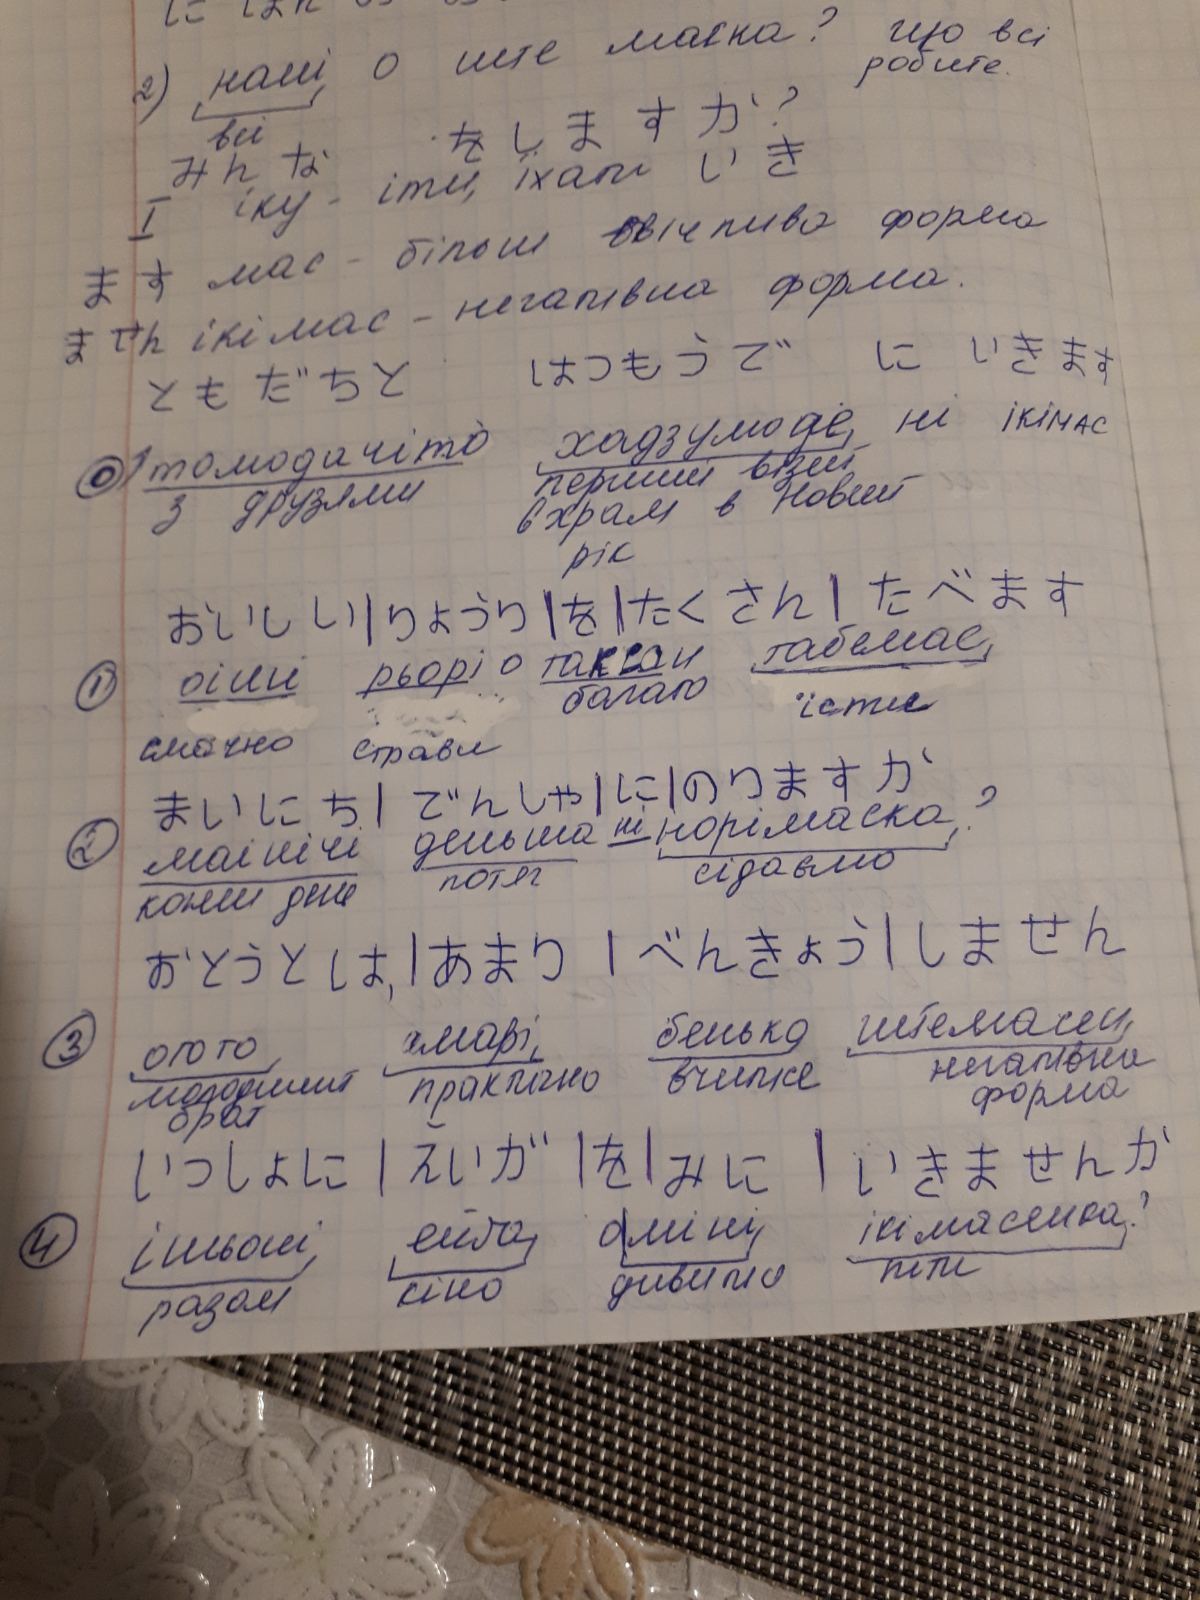 2) о ште маска? що всі
робите.
всі
みんな をしますか?
I іку - іти, їхати いき
ます мас - більш ввічлива форма
ません ікімас - негатівна форма.
ともだちと はつもうで に いきます
0) томодачіто хадзумоде, ні ікімас
з друзями перший візит
в храм в Новий
рік
おいしい|りょうり|を|たくさん|たべます
1) оіши рьорі о таксан табемас,
багато їсти
смачно страви
まいにち|でんしゃ|に|のりますか
2) маінічі деньша ні норімаска,?
кожен день потяг сідаємо
おとうとは,|あまり|べんきょう|しません
3) отото, амарі, бенько штемасен,
молодший практично вчитсе негатівна
брат форма
いっしょに|えいが|を|みに|いきませんか
4) ішьоні, ейга, о міні, ікімасенка,?
разом кіно дивитис піти